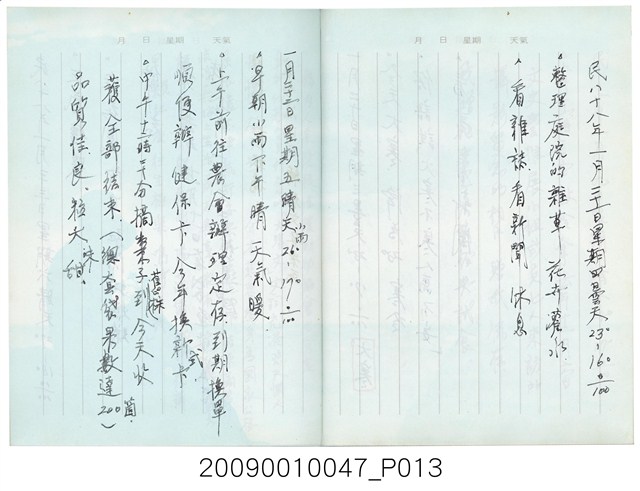 月 日 星期 天氣
民八十八年一月二十一日星期四曇天23°~16° 0/100
。整理庭院的雜草 花卉灌水
。看雜誌.看新聞 休息
月 日 星期 天氣
一月二十二日星期五晴天小雨26°~17° 0/100
。早朝小雨下午晴 天氣暖.
。上午前往農會辦理定存到期換單
順便辦健保卡 今年換新式卡.
。中午十一時二十分摘棗子到今天收
穫全部結束.(總套袋果數達200箇.)
品質佳良、粒大味甜.
20090010047_P013